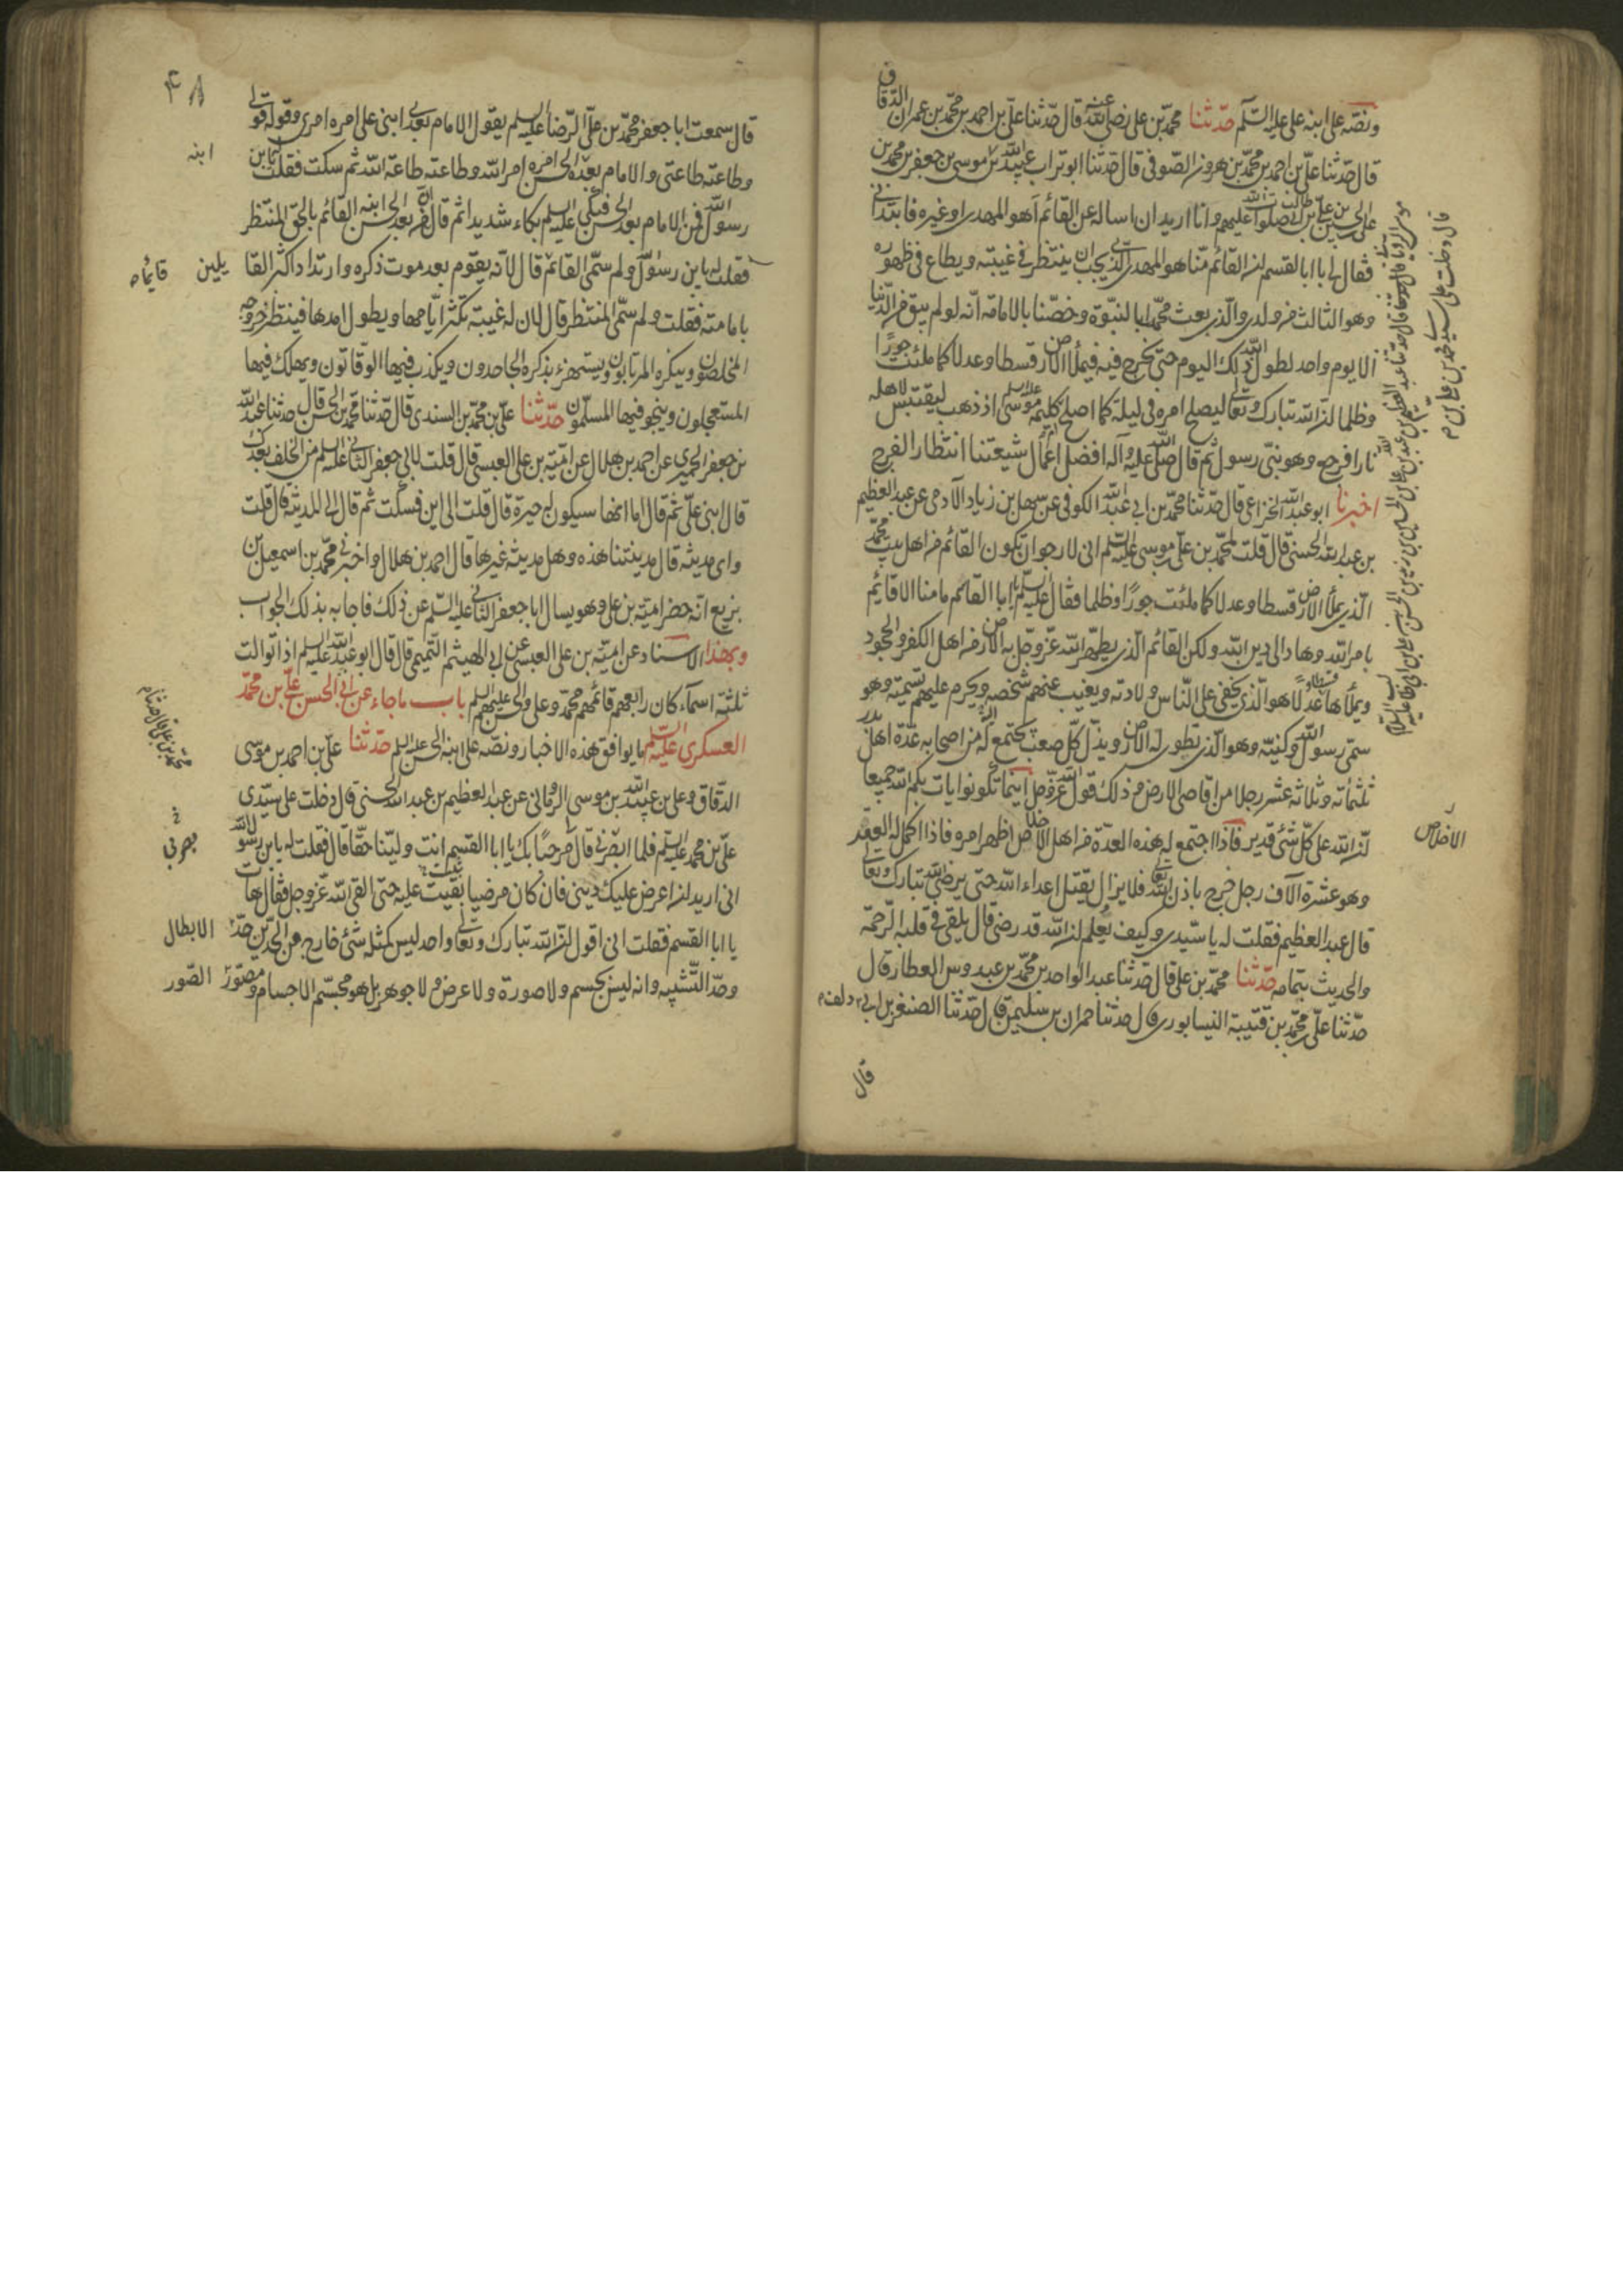 ونصه على ابنه على عليه السلم حدثنا محمد بن على رضى الله عنه قال حدثنا على بن احمد بن محمد بن عمران الدقاق
قال حدثنا على بن احمد بن محمد بن هرون الصوفى قال حدثنا ابو تراب عبيد الله بن موسى بن جعفر بن محمد بن
على بن الحسين بن على بن ابى طالب صلوات الله عليهم وانا اريد ان اساله عن القائم اهو المهدى او غيره فابتدانى
فقال لى يا ابا القسم ان القائم منا هو المهدى الذى يجب ان ينتظر فى غيبته ويطاع فى ظهوره
وهو الثالث من ولدى والذى بعث محمدا بالنبوة وخصنا بالامامة انه لو لم يبق من الدنيا
الا يوم واحد لطول الله ذلك اليوم حتى يخرج فيه فيملأ الارض قسطا وعدلا كما ملئت جورا
وظلما ان الله تبارك وتعالى ليصلح امره فى ليلة كما اصلح كليمه موسى عليه السلم اذ ذهب ليقتبس لاهله
نارا فرجع وهو نبى رسول ثم قال صلى الله عليه وآله افضل اعمال شيعتنا انتظار الفرج
اخبرنا ابو عبد الله الخزاعى قال حدثنا محمد بن ابى عبد الله الكوفى عن سهل بن زياد الآدمى عن عبد العظيم
بن عبد الله الحسنى قال قلت لمحمد بن على موسى عليه السلم انى لارجو ان تكون القائم من اهل بيت محمد
الذى يملأ الارض قسطا وعدلا كما ملئت جورا وظلما فقال عليه السلم يا ابا القاسم ما منا الا قائم
بامر الله وهاد الى دين الله ولكن القائم الذى يطهر الله عز وجل به الارض من اهل الكفر والجحود
ويملأها عدلا وقسطا هو الذى يخفى على الناس ولادته ويغيب عنهم شخصه ويحرم عليهم تسميته وهو
سمى رسول الله وكنيه وهو الذى تطوى له الارض ويذل كل صعب يجتمع اليه من اصحابه عدة اهل بدر
ثلثمائه وثلاثه عشر رجلا من اقاصى الارض وذلك قول الله عز وجل اينما تكونوا يات بكم الله جميعا
ان الله على كل شئ قدير فاذا اجتمع له هذه العدة من اهل الارض اظهر امره فاذا اكمل له العقد
وهو عشرة آلاف رجل خرج باذن الله تعالى فلا يزال يقتل اعداء الله حتى يرضى الله تبارك وتعالى
قال عبد العظيم فقلت له يا سيدى وكيف يعلم ان الله قد رضى قال يلقى فى قلبه الرحمة
والحديث بتمامه حدثنا محمد بن على قال حدثنا عبد الواحد بن محمد بن عبدوس العطار قال
حدثنا على محمد بن قتيبة النيسابورى قال حدثنا حمران بن سليمن قال حدثنا الصقر بن ابى دلف
قال
الاخلاص
قال دخلت على سيدى محمد بن على بن
٤٨
قال سمعت ابا جعفر محمد بن على الرضا عليه السلم يقول الامام بعدى ابنى على امره امرى وقوله قولى
وطاعته طاعتى والامام بعده الحسن امره امر الله وطاعته طاعة الله ثم سكت فقلت يابن
رسول الله فمن الامام بعد الحسن فبكى عليه السلم بكاء شديدا ثم قال ان من بعد الحسن ابنه القائم بالحق المنتظر
فقلت له يابن رسول الله ولم سمى القائم قال لانه يقوم بعد موت ذكره وارتداد اكثر القا
بامامته فقلت ولم سمى المنتظر قال لان له غيبة تكثر ايامها ويطول امدها فينتظر خروجه
المخلصون وينكره المرتابون ويستهزء بذكره الجاحدون ويكذب فيها الوقاتون ويهلك فيها
المستعجلون وينجو فيها المسلمون حدثنا على بن محمد بن السندى قال حدثنا محمد بن الحسن قال حدثنا عبد الله
بن جعفر الحميرى عن احمد بن هلال عن امية بن على العبسى قال قلت لابى جعفر الثانى عليه السلم من الخلف بعدك
قال ابنى على ثم قال اما انها سيكون حيرة قال قلت الى اين فسكت ثم قال الى المدينة قال قلت
واى مدينه قال مدينتنا هذه وهل مدينة غيرها قال احمد بن هلال واخبرنى محمد بن اسمعيل بن
بزيع انه حضر امية بن على وهو يسال ابا جعفر الثانى عليه السلم عن ذلك فاجابه بذلك الجواب
وبهذا الاسناد عن امية بن على العبسى عن ابى الهيثم التميمى قال قال ابو عبد الله عليه السلم اذا توالت
ثلثة اسماء كان رابعهم قائمهم محمد وعلى والحسن عليهم السلم باب ما جاء عن ابى الحسن على بن محمد
العسكرى عليه السلم ما يوافق هذه الاخبار ونصه على ابنه الحسن عليه السلم حدثنا على بن احمد بن موسى
الدقاق وعلى بن عبيد الله بن موسى الرويانى عن عبد العظيم بن عبد الله الحسنى قال دخلت على سيدى
على بن محمد عليه السلم فلما ابصرنى قال مرحبا بك يا ابا القسم انت ولينا حقا قال فقلت له يابن رسول الله
انى اريد ان اعرض عليك دينى فان كان مرضيا بقيت عليه حتى القى الله عز وجل فقال هات
يا ابا القسم فقلت انى اقول ان الله تبارك وتعالى واحد ليس كمثله شئ خارج من الحدين حد الابطال
وحد التشبيه وانه ليس بجسم ولا صورة ولا عرض ولا جوهر بل هو مجسم الاجسام ومصور الصور
ابنه
يلين
محمد بن على قال حدثنا